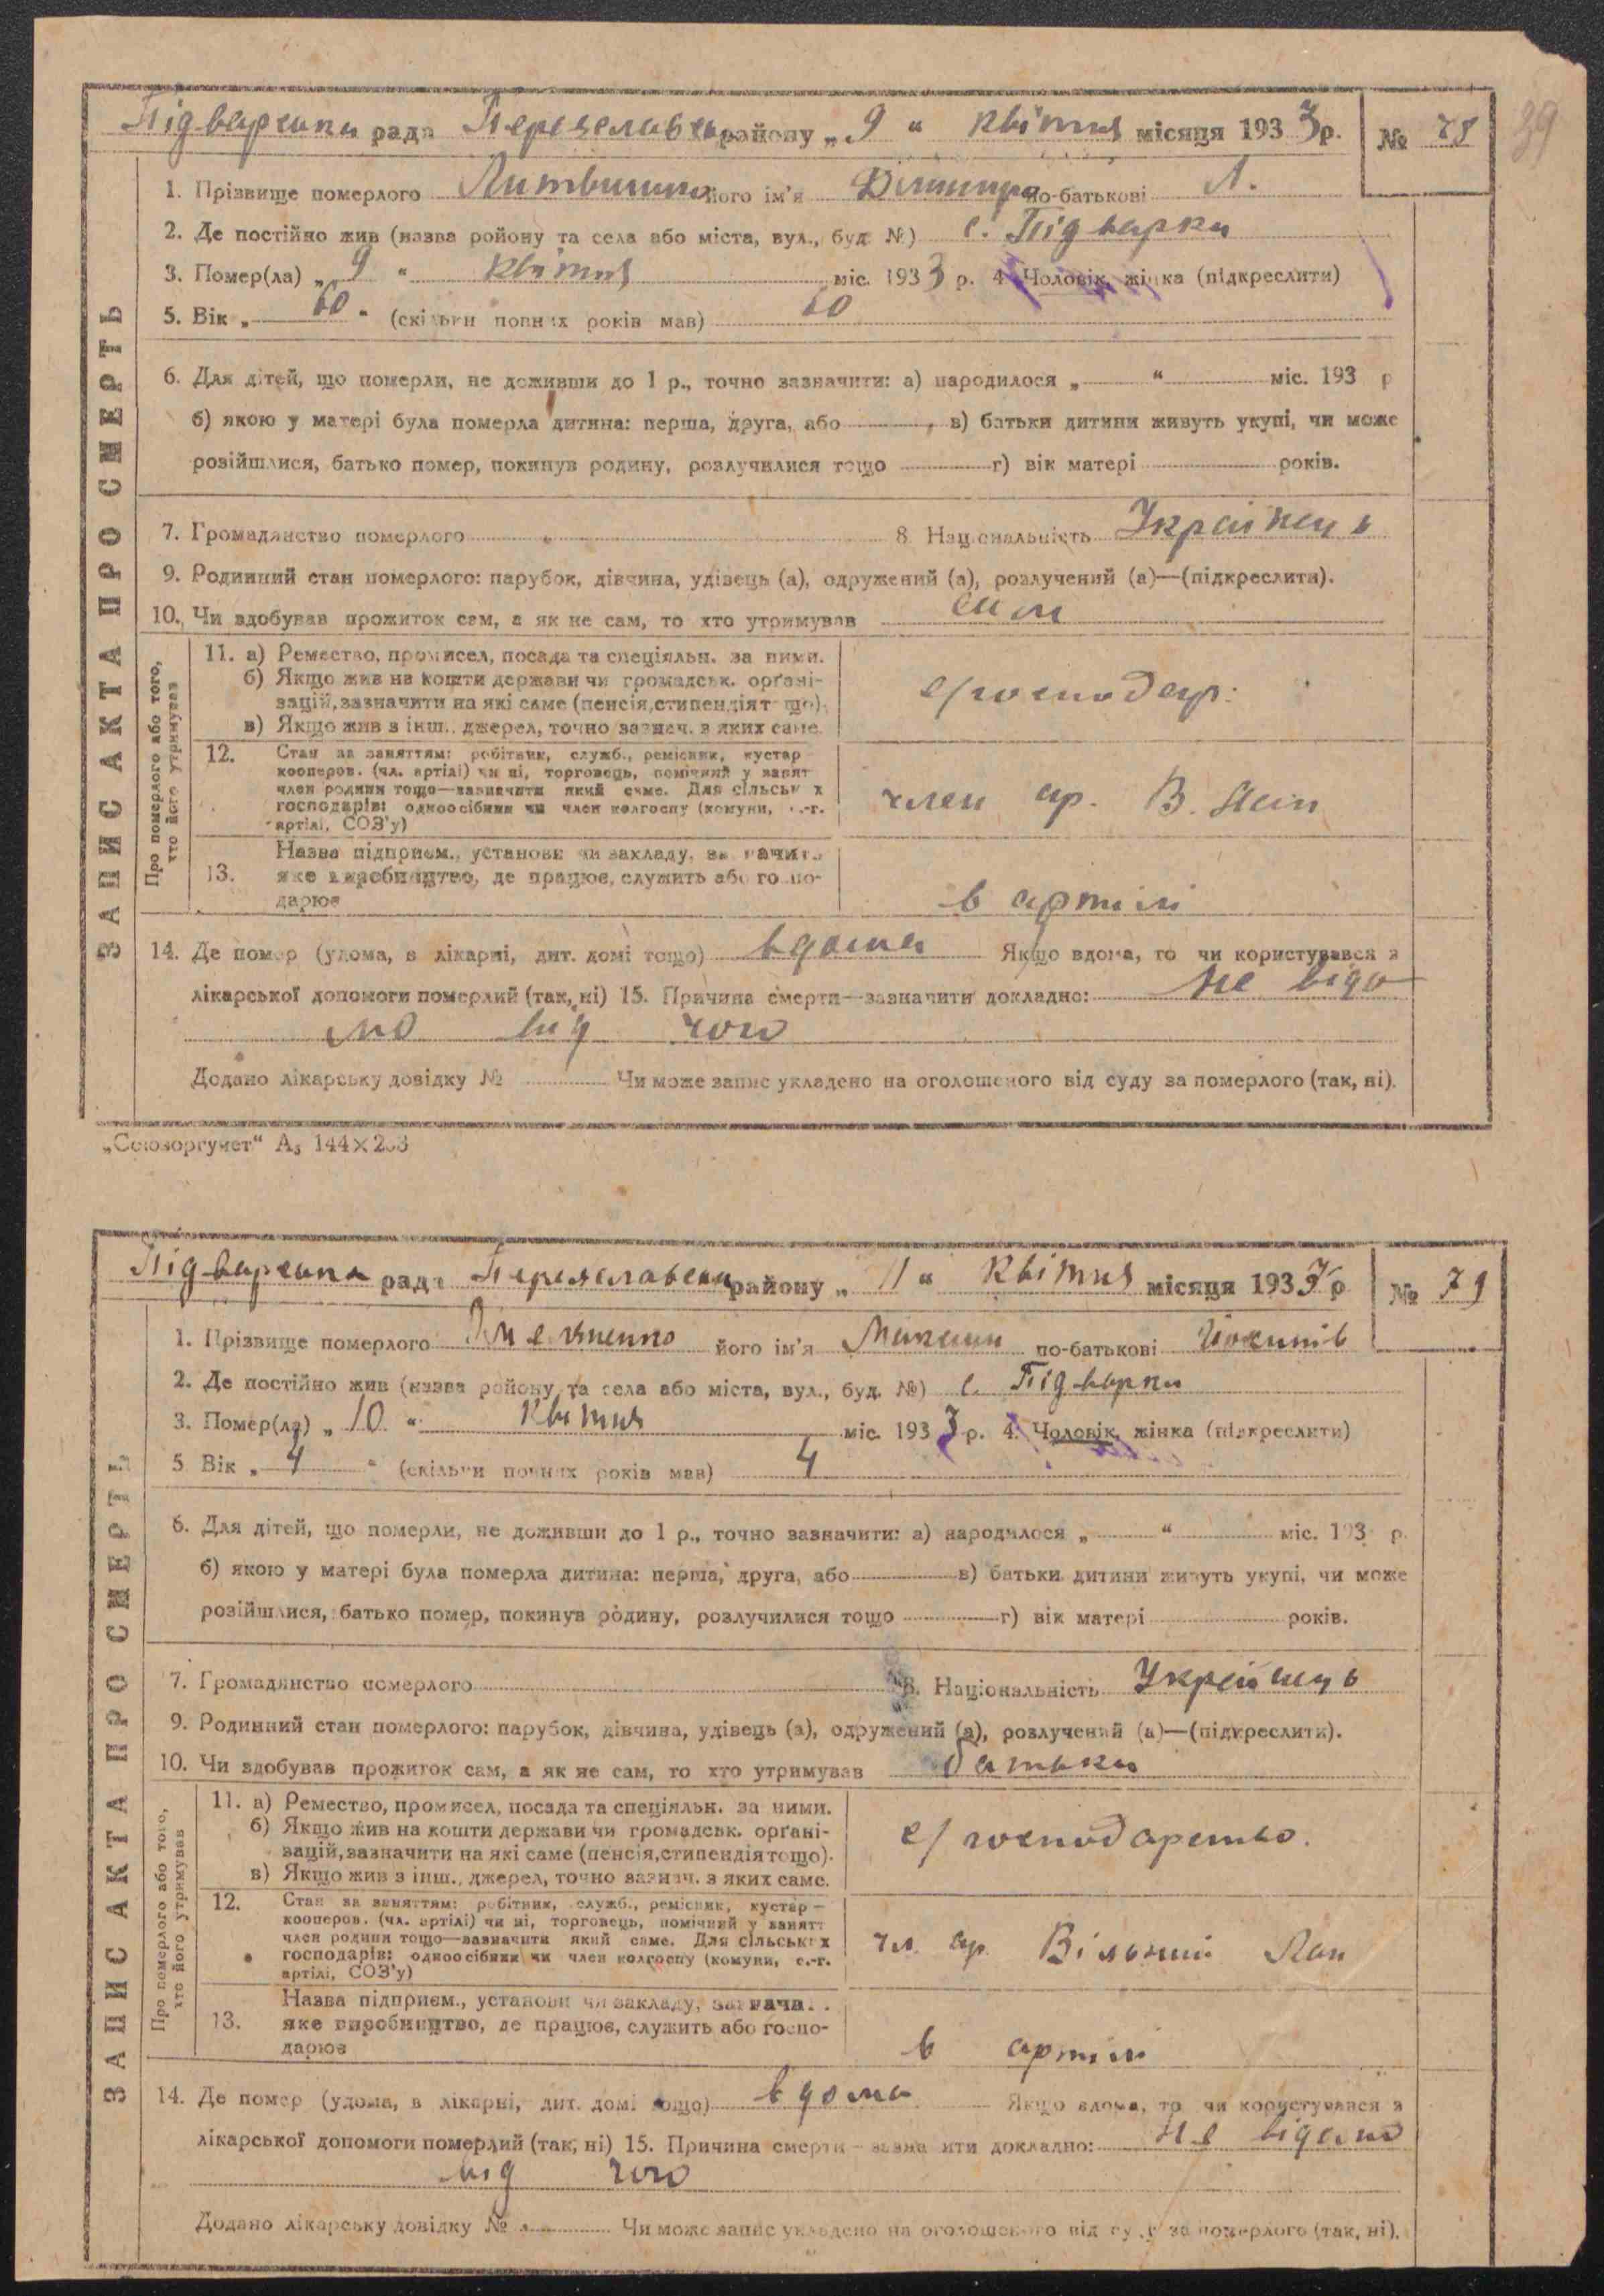 39
Підварська рада Переяславськ району „ 9 “ квітня місяця 1933 р. № 78
ЗАПИС АКТА ПРО СМЕРТЬ
1. Прізвище померлого Литвиненко його ім'я по-батькові Л.
2. Де постійно жив (назва ройону та села або міста, вул., буд. №) с. Підварки
3. Помер(ла) „ 9 “ квітня міс. 1933 р. 4. Чоловік, жінка (підкреслити)
5. Вік „ 60 “ (скільки повних років мав) 60
6. Для дітей, що померли, не доживши до 1 р., точно зазначити: а) народилося „ “ міс. 193 р
б) якою у матері була померла дитина: перша, друга, або , в) батьки дитини живуть укупі, чи може
розійшлися, батько помер, покинув родину, розлучилися тощо г) вік матері років.
7. Громадянство померлого 8. Національність Українець
9. Родинний стан померлого: парубок, дівчина, удівець (а), одружений (а), розлучений (а)—(підкреслити).
10. Чи здобував прожиток сам, а як не сам, то хто утримував сам
Про померлого або того, хто його утримував
11. а) Ремество, промисел, посада та спеціяльн. за ними.
б) Якщо жив на кошти держави чи громадськ. орґані-
зацій, зазначити на які саме (пенсія, стипендіят що).
в) Якщо жив з інш.. джерел, точно зазнач. з яких саме.
с/господар.
12. Стан за заняттям: робітник, служб., ремісник, кустар
кооперов. (чл. артілі) чи ні, торговець, помічний у занят
член родини тощо—зазначити який саме. Для сільськ х
господарів: одноосібник чи член колгоспу (комуни, с.-г.
артілі, СОЗ'у)
член ар. В. Лан
13. Назва підприєм., установи чи закладу, зазначити
яке виробництво, де працює, служить або госпо-
дарює
в артілі
14. Де помер (удома, в лікарні, дит. домі тощо) вдома Якщо вдома, то чи користувався з
лікарської допомоги померлий (так, ні) 15. Причина смерти—зазначити докладно: не відо
мо від чого
Додано лікарську довідку № Чи може запис укладено на оголошеного від суду за померлого (так, ні).
„Союзоргучет“ А₅ 144×203
Підварська рада Переяславськ району „ 11 “ квітня місяця 1933 р № 79
ЗАПИС АКТА ПРО СМЕРТЬ
1. Прізвище померлого його ім'я Микола по-батькові
2. Де постійно жив (назва ройону та села або міста, вул., буд. №) с. Підварки
3. Помер(ла) „ 10 “ квітня міс. 1933 р. 4. Чоловік, жінка (підкреслити)
5 Вік „ 4 “ (скільки повних років мав) 4
6. Для дітей, що померли, не доживши до 1 р., точно зазначити: а) народилося „ “ міс. 193 р.
б) якою у матері була померла дитина: перша, друга, або в) батьки дитини живуть укупі, чи може
розійшлися, батько помер, покинув родину, розлучилися тощо г) вік матері років.
7. Громадянство померлого 8. Національність Українець
9. Родинний стан померлого: парубок, дівчина, удівець (а), одружений (а), розлучений (а)—(підкреслити).
10. Чи здобував прожиток сам, а як не сам, то хто утримував батьки
Про померлого або того, хто його утримував
11. а) Ремество, промисел, посада та спеціяльн. за ними.
б) Якщо жив на кошти держави чи громадськ. орґані-
зацій, зазначити на які саме (пенсія, стипендія тощо).
в) Якщо жив з інш., джерел, точно зазнач. з яких саме.
с/господарство.
12. Стан за заняттям: робітник, служб., ремісник, кустар—
кооперов. (чл. артілі) чи ні, торговець, помічний у занятт
член родини тощо—зазначити який саме. Для сільських
господарів: одноосібник чи член колгоспу (комуни, с.-г.
артілі, СОЗ'у)
чл. ар. Вільний Лан
13. Назва підприєм., установи чи закладу, зазнача..
яке виробництво, де працює, служить або госпо-
дарює
в артілі
14. Де помер (удома, в лікарні, дит. домі тощо) вдома Якщо вдома, то чи користувався з
лікарської допомоги померлий (так, ні) 15. Причина смерти—зазначити докладно: не відомо
від чого
Додано лікарську довідку № Чи може запис укладено на оголошеного від суду за померлого (так, ні).